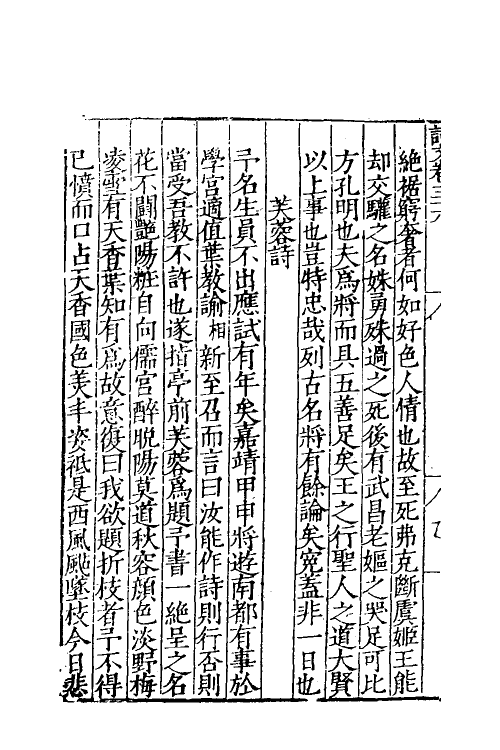 絶裾窮奢者何如好色人情也故至死弗克斷虞姬王能
却交驩之名姝勇殊過之死後有武昌老嫗之哭足可比
方孔明也夫爲將而具五善足矣王之行聖人之道大賢
以上事也豈特忠哉列古名將有餘論矣寃蓋非一日也
芙蓉詩
予名生員不出應試有年矣嘉靖甲申將遊南都有事於
學宫適值葉教諭相新至召而言曰汝能作詩則行否則
當受吾教不許也遂指亭前芙蓉爲題予書一絶呈之名
花不闘艶陽粧自向儒宫醉晩陽莫道秋容顔色淡野梅
凌雪有天香葉知有爲故意復曰我欲題折枝者予不得
已憤而口占天香國色美丰姿祗是西風颭墜枝今日悲